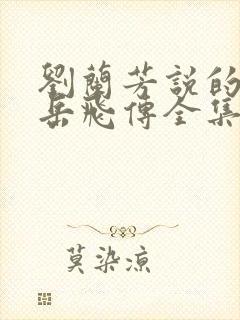 劉蘭芳說的
岳飛傳全集
莫染涼